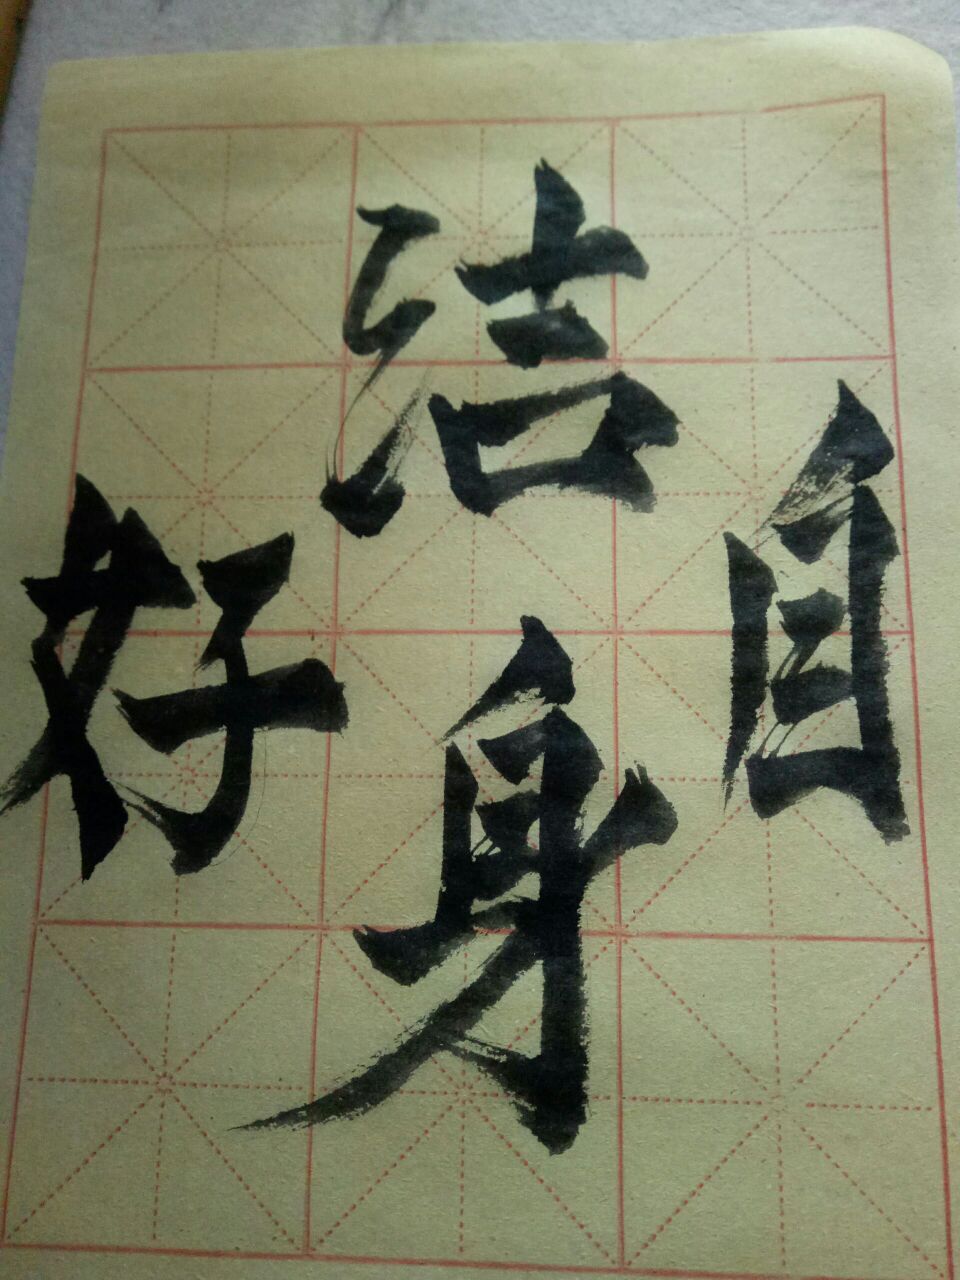 洁
身
自
好